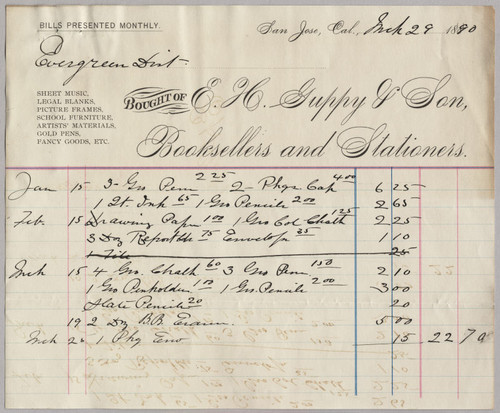 BILLS PRESENTED MONTHLY.
San Jose, Cal., Mch 29 1890
Evergreen Dist.
SHEET MUSIC,
LEGAL BLANKS,
PICTURE FRAMES,
SCHOOL FURNITURE,
ARTISTS' MATERIALS,
GOLD PENS,
FANCY GOODS, ETC.
BOUGHT OF E. H. Guppy & Son,
Booksellers and Stationers.
Jan 15 3 Gro Pens 2 25 2 Pkgs Cap 4.00 6 25
1 Qt Ink 65 1 Gro Pencils 2 00 2 65
Feb 15 Drawing Paper 1 00 1 Gro Col Chalk 1 25 2 25
3 Doz Reporters 75 Envelops 35 1 10
1 File 25
Mch 15 4 Gro. Chalk 60 3 Gro Pens 1 50 2 10
1 Gro Penholders 1 00 1 Gro Pencils 2 00 3 00
Slate Pencils 20 20
19 2 Dz B.B. Erasers 5 00
Mch 26 1 Pkg Env 15 22 70